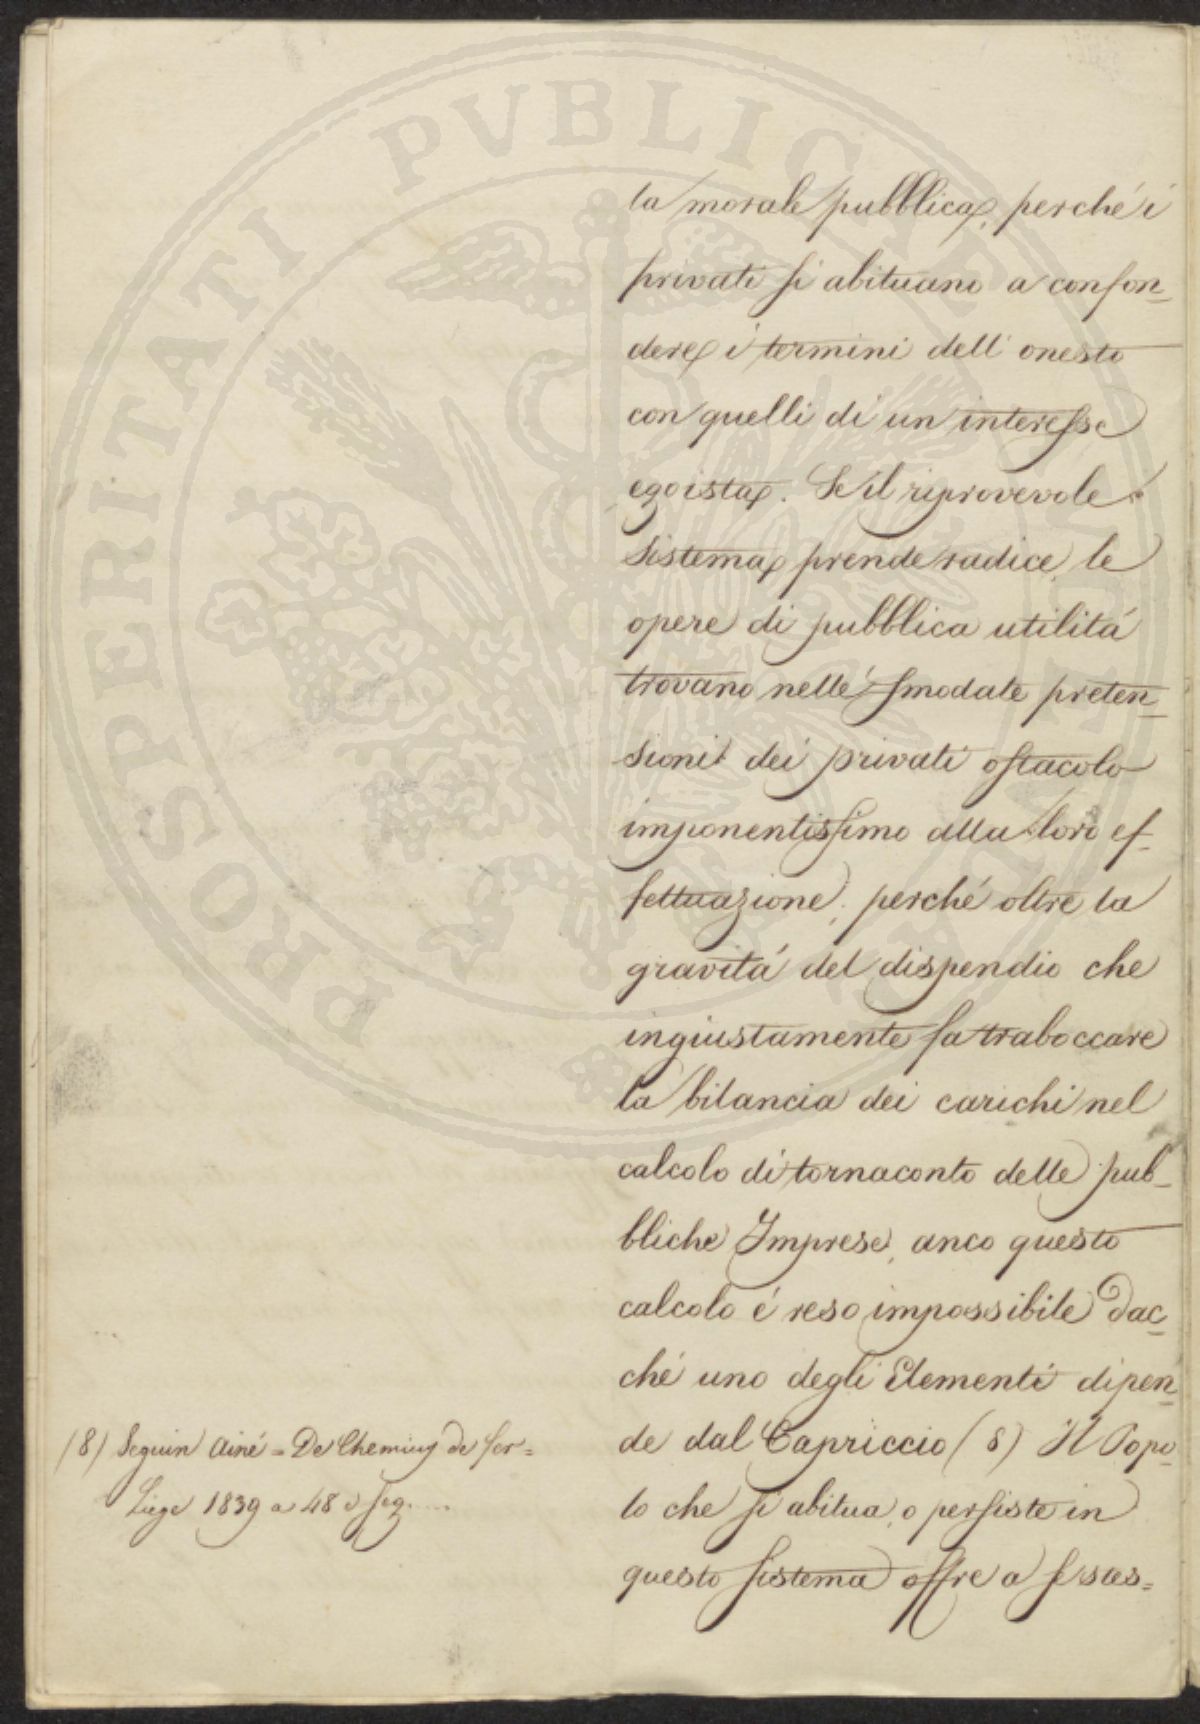 la morale pubblica, perché i
privati si abituano a confon_
dere i termini dell' onesto
con quelli di un interesse
egoista. Se il riprovevole
Sistema prende radice, le
opere di pubblica utilitá
trovano nelle smodate preten_
sioni dei privati ostacolo
imponentissimo alla loro ef_
fettuazione; perché oltre la
gravitá del dispendio che
ingiustamente fa traboccare
la bilancia dei carichi nel
calcolo di tornaconto delle pub_
bliche Imprese, anco questo
calcolo é reso impossibile dac_
ché uno degli Elementi dipen_
de dal Capriccio (8) Il Popo_
lo che si abitua, o persiste in
questo sistema offre a se stes=
(8) Seguin Ainé = De Chemins de fer =
Liege 1839 a 48 e seg....
PROSPERITATI PVBLICAE